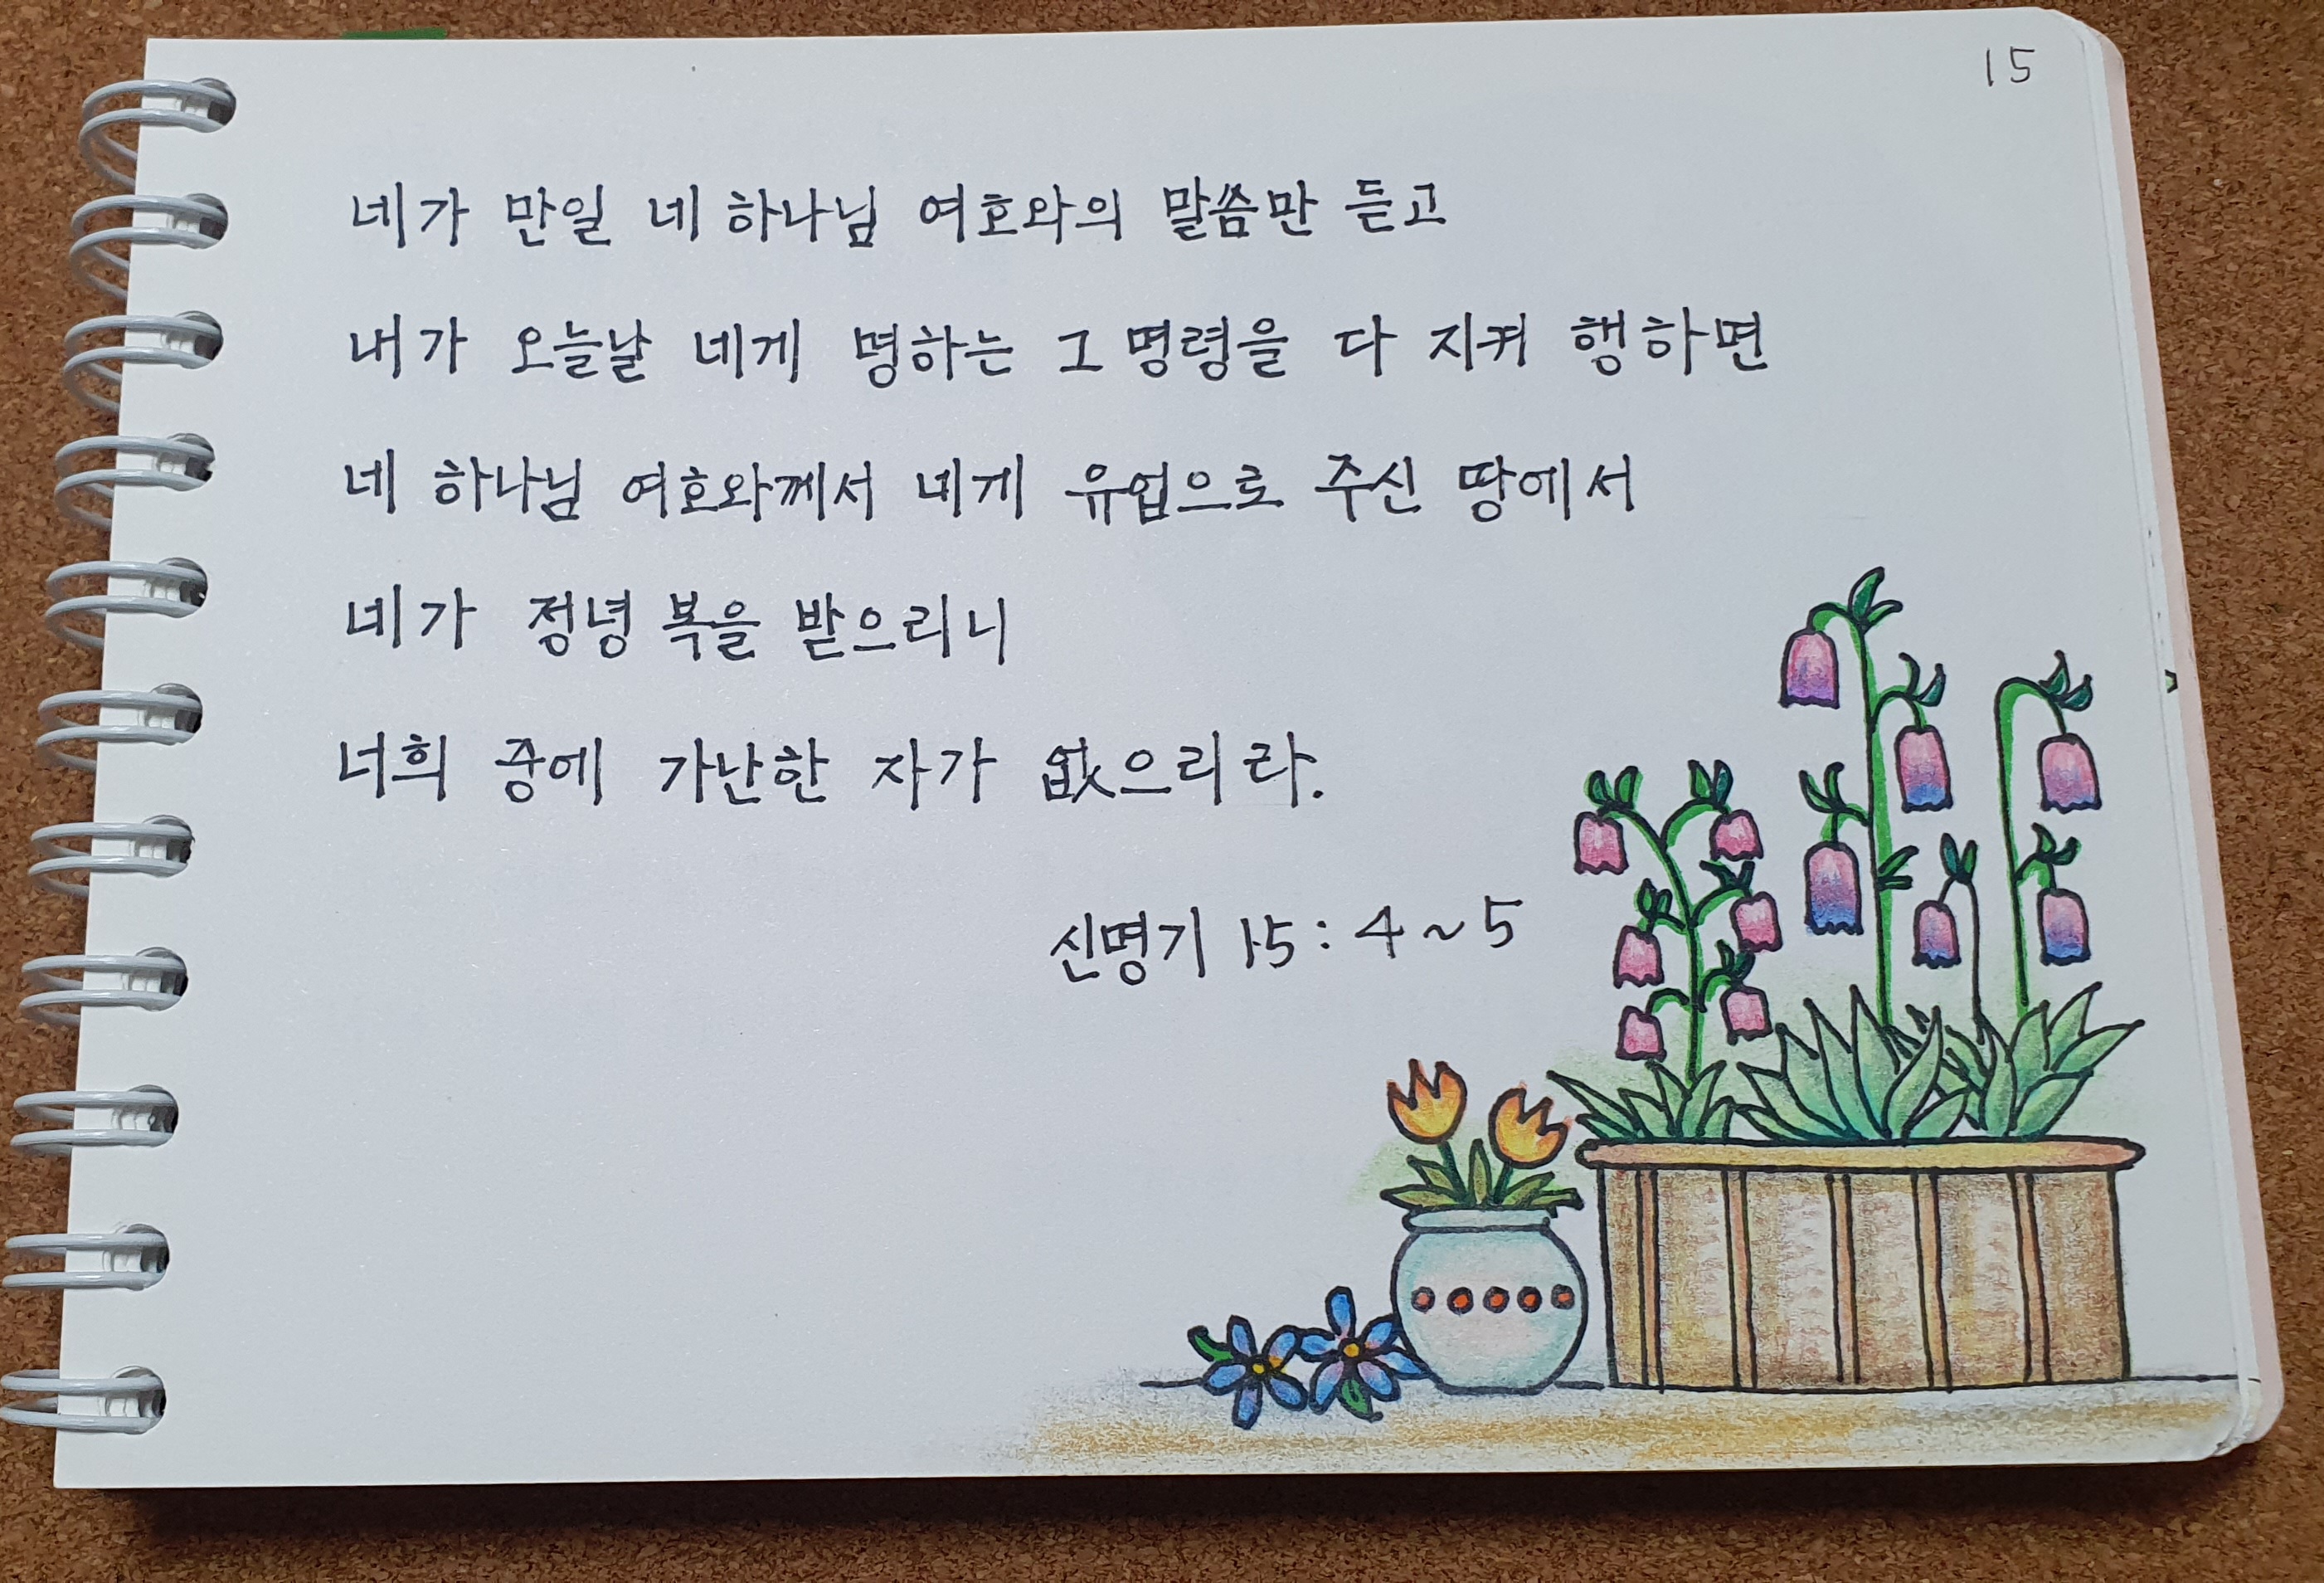 15
네가 만일 네 하나님 여호와의 말씀만 듣고
내가 오늘날 네게 명하는 그 명령을 다 지켜 행하면
네 하나님 여호와께서 네게 유업으로 주신 땅에서
네가 정녕 복을 받으리니
너희 중에 가난한 자가 없으리라.
신명기 15:4~5